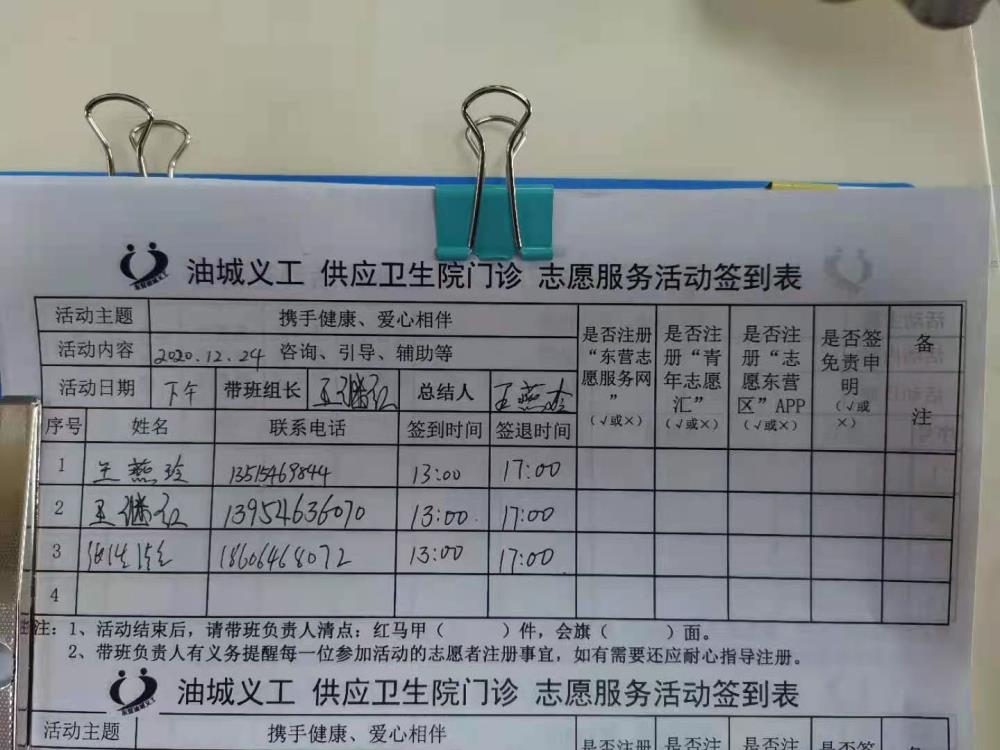 油城义工 供应卫生院门诊 志愿服务活动签到表
活动主题 携手健康、爱心相伴 是否注册“东营志愿服务网”（√或×） 是否注册“青年志愿汇”（√或×） 是否注册“志愿东营区”APP（√或×） 是否签免责申明（√或×） 备注
活动内容 2020.12.24 咨询、引导、辅助等
活动日期 下午 带班组长 王继红 总结人 王燕玲
序号 姓名 联系电话 签到时间 签退时间
1 王燕玲 13515469844 13:00 17:00
2 王继红 13954636070 13:00 17:00
3 18606468072 13:00 17:00
4
注：1、活动结束后，请带班负责人清点：红马甲（ ）件，会旗（ ）面。
2、带班负责人有义务提醒每一位参加活动的志愿者注册事宜，如有需要还应耐心指导注册。
油城义工 供应卫生院门诊 志愿服务活动签到表
活动主题 携手健康、爱心相伴 是否注册 是否注 是否注 是否签